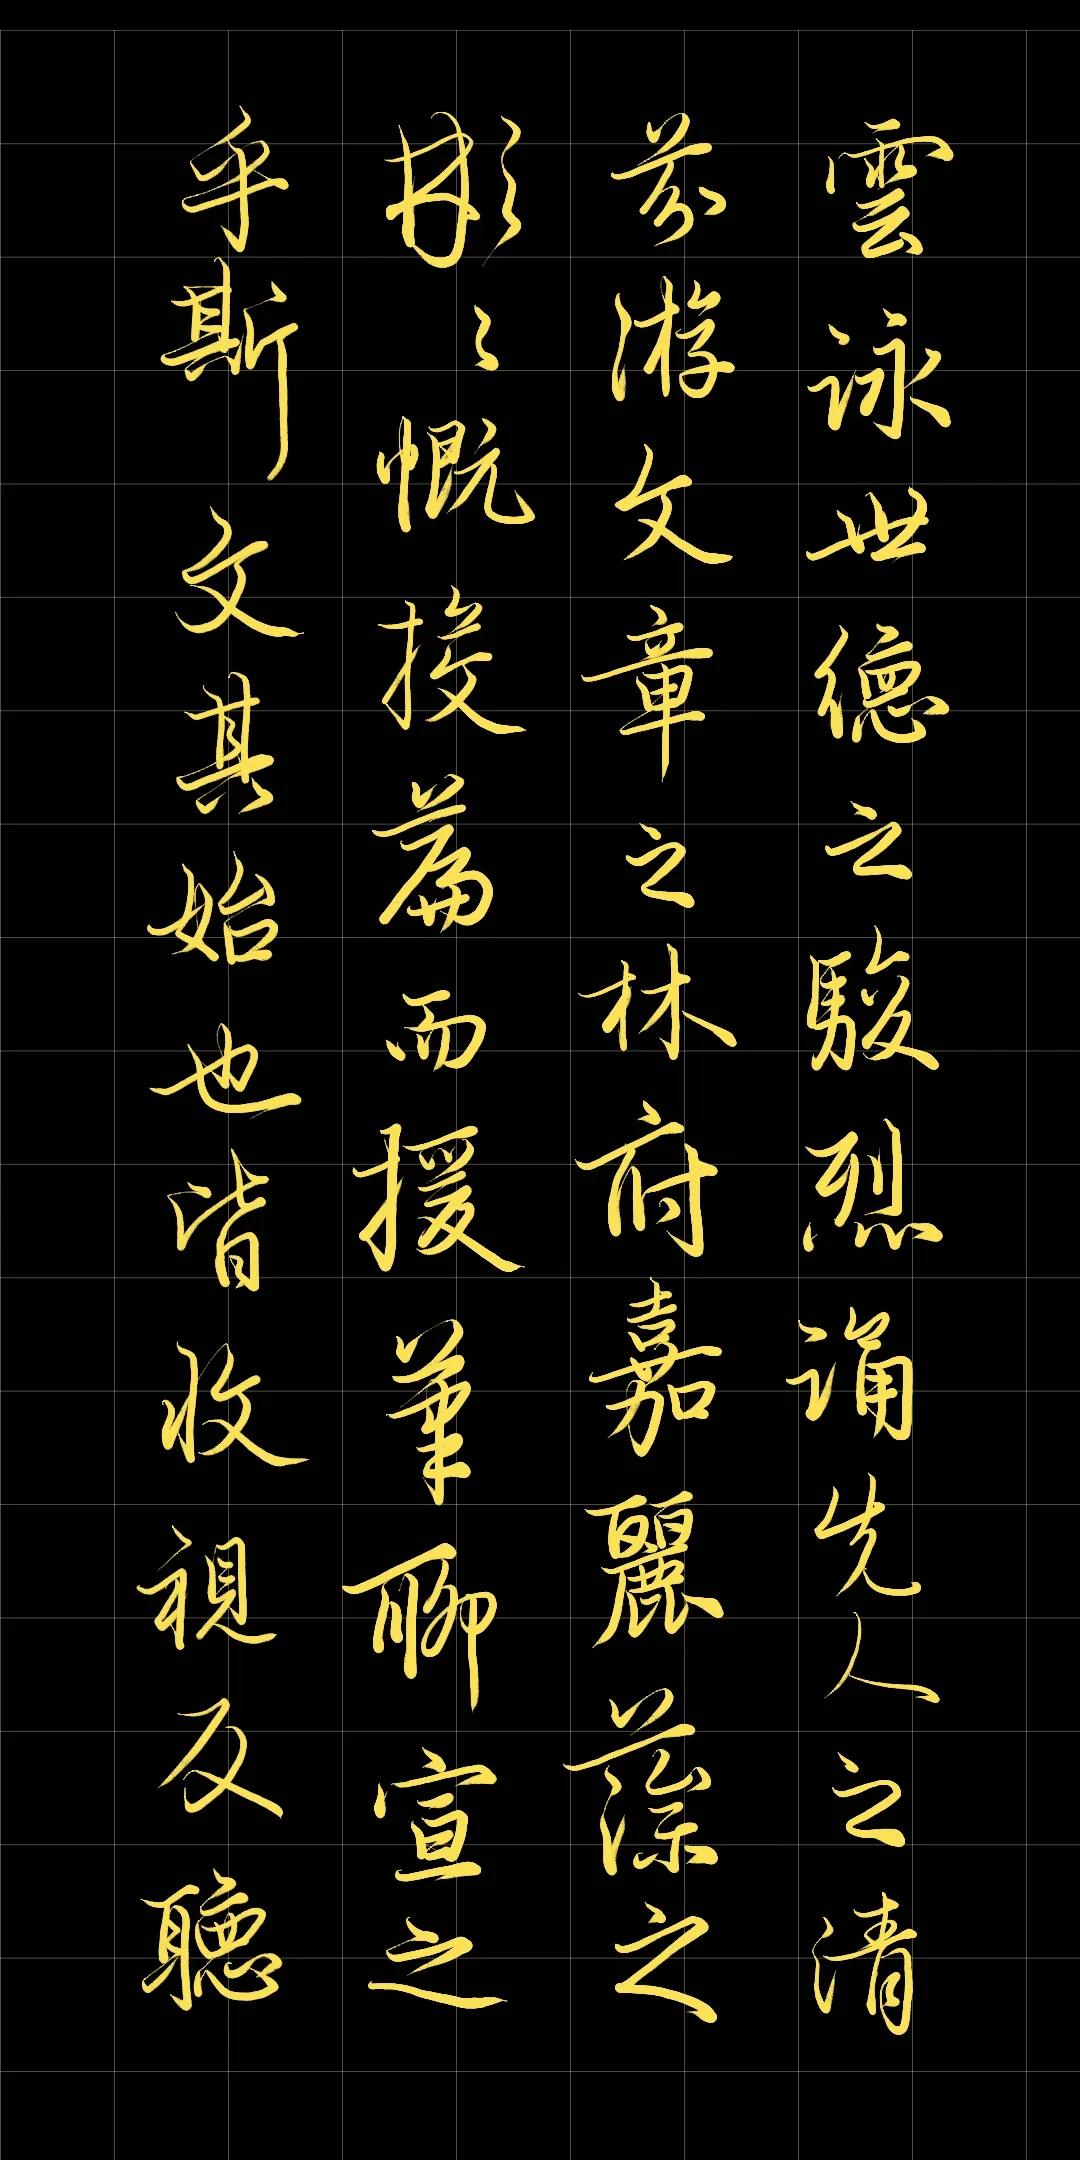 雲詠世德之駿烈誦先人之清
芬游文章之林府嘉麗藻之
彬〻慨投篇而援筆聊宣之
乎斯文其始也皆收視反聽